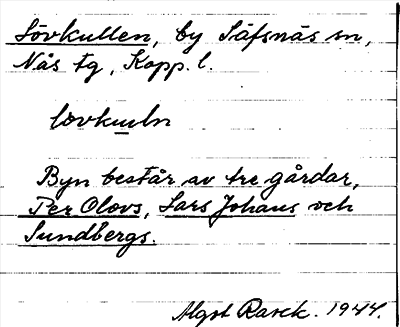 Lövkullen, by Säfsnäs sn,
Nås tg, Kopp. l.
lövkuln
Byn består av tre gårdar,
Per Olovs, Lars Johans och
Sundbergs.
Algot Rasck. 1944.